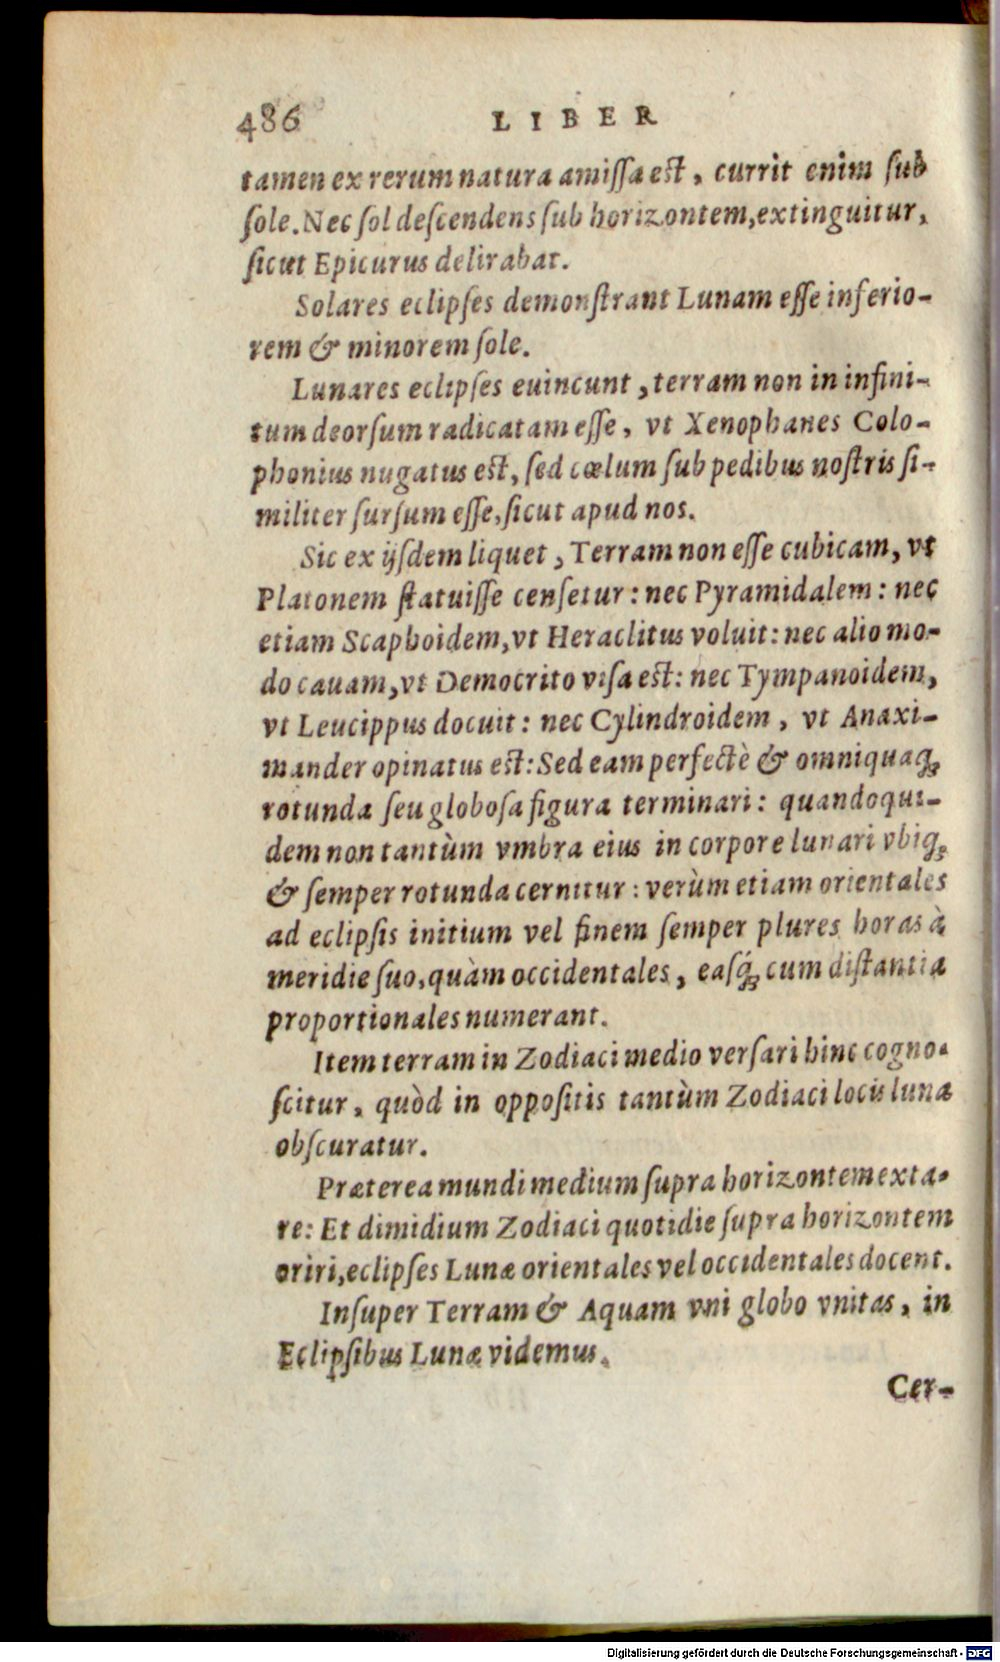 486 LIBER
tamen ex rerum natura amiſſa eſt, currit enim ſub
ſole. Nec ſol deſcendens ſub horizontem, extinguitur,
ſicut Epicurus delirabat.
Solares eclipſes demonſtrant Lunam eſſe inferio-
rem & minorem ſole.
Lunares eclipſes euincunt, terram non in infini-
tum deorſum radicatam eſſe, vt Xenophanes Colo-
phonius nugatus eſt, ſed cœlum ſub pedibus noſtris ſi-
militer ſurſum eſſe, ſicut apud nos.
Sic ex ijſdem liquet, Terram non eſſe cubicam, vt
Platonem ſtatuiſſe cenſetur: nec Pyramidalem: nec
etiam Scaphoidem, vt Heraclitus voluit: nec alio mo-
do cauam, vt Democrito viſa eſt: nec Tympanoidem,
vt Leucippus docuit: nec Cylindroidem, vt Anaxi-
mander opinatus eſt: Sed eam perfectè & omniquaq;
rotunda ſeu globoſa figura terminari: quandoqui-
dem non tantùm vmbra eius in corpore lunari vbiq;
& ſemper rotunda cernitur: verùm etiam orientales
ad eclipſis initium vel finem ſemper plures horas à
meridie ſuo, quàm occidentales, eaſq́; cum diſtantia
proportionales numerant.
Item terram in Zodiaci medio verſari hinc cogno-
ſcitur, quòd in oppoſitis tantùm Zodiaci locis luna
obſcuratur.
Præterea mundi medium ſupra horizontem exta-
re: Et dimidium Zodiaci quotidie ſupra horizontem
oriri, eclipſes Lunæ orientales vel occidentales docent.
Inſuper Terram & Aquam vni globo vnitas, in
Eclipſibus Lunæ videmus.
Cer-
Digitalisierung gefördert durch die Deutsche Forschungsgemeinschaft - DFG